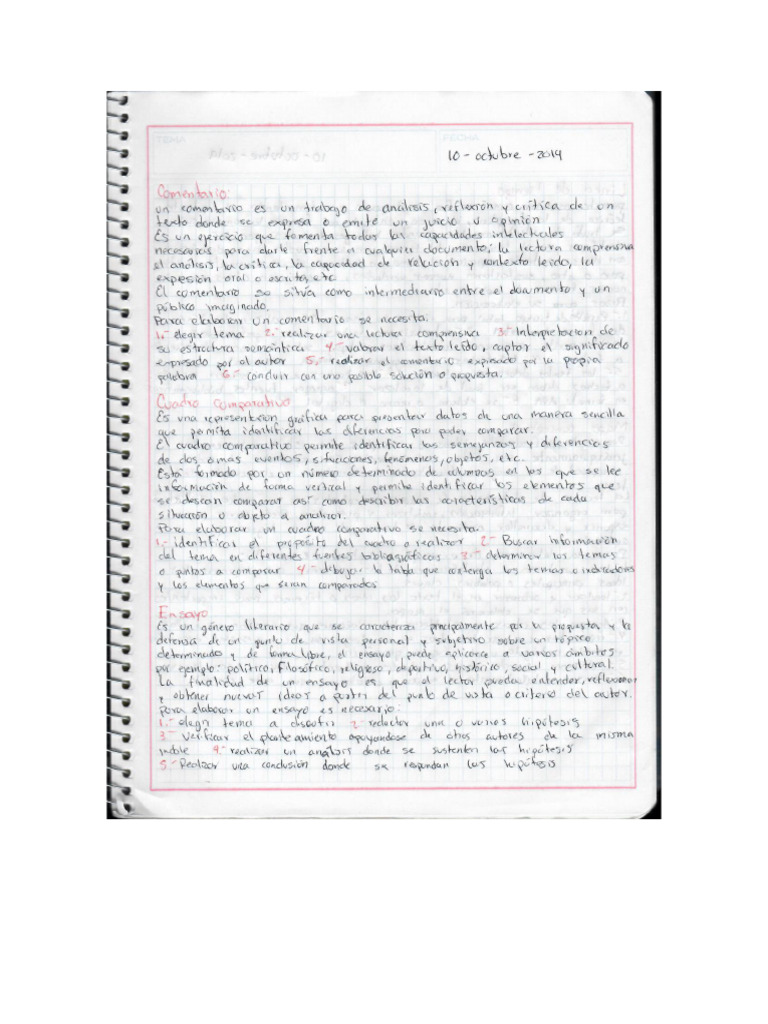 TEMA
FECHA
10 - octubre - 2019
Comentario:
un comentario es un trabajo de analisis, reflexion y critica de un
texto donde se expresa o emite un juicio u opinión
Es un ejercicio que fomenta todas las capacidades intelectuales
necesarias para darle frente a cualquier documento; la lectura comprensiva
el análisis, la critica, la capacidad de relación y contexto leido, la
expesión oral o escrita, etc
El comentario se sitúa como intermediario entre el documento y un
público imaginado.
Para elaborar un comentario se necesita.
1.- elegir tema 2.- realizar una lectura comprensiva 3.- Interpretacion de
su estructura semántica 4.- valorar el texto leído, captar el significado
expresado por el autor 5.- realizar el comentario expresado por la propia
palabra 6.- concluir con una posible solución o propuesta.
Cuadro comparativo
Es una representacion gráfica para presentar datos de una manera sencilla
que permita identificar las diferencias para poder comparar.
El cuadro comparativo permite identificar las semejanzas y diferencias
de dos o mas eventos, situaciones, fenómenos, objetos, etc.
Está formado por un número determinado de columnas en las que se lee
información de forma vertical y permite identificar los elementos que
se desean comparar así como describir las características de cada
situación u objeto a analizar.
Para elaborar un cuadro comparativo se necesita.
1.- identificar el propósito del cuadro a realizar 2.- Buscar información
del tema en diferentes fuentes bibliograficas 3.- determinar los temas
o puntos a comparar 4.- dibujar la tabla que contenga los temas o indicadores
y los elementos que seran comparados
Ensayo
Es un género literario que se caracteriza principalmente por la propuesta y la
defensa de un punto de vista personal y subjetivo sobre un tópico
determinado y de forma libre, el ensayo puede aplicarce a varios ámbitos
por ejemplo: político, filosófico, religioso, deportivo, histórico, social y cultural.
La finalidad de un ensayo es que el lector pueda entender, reflexionar
y obtener nuevas ideas a partir del punto de vista o criterio del autor.
Para elaborar un ensayo es necesario:
1.- elegir tema a discutir 2.- redactar una o varias hipótesis
3.- Verificar el planteamiento apoyandose de otros autores de la misma
indole 4.- realizar un análisis donde se sustenten las hipótesis
5.- Realizar una conclusión donde se respondan las hipótesis